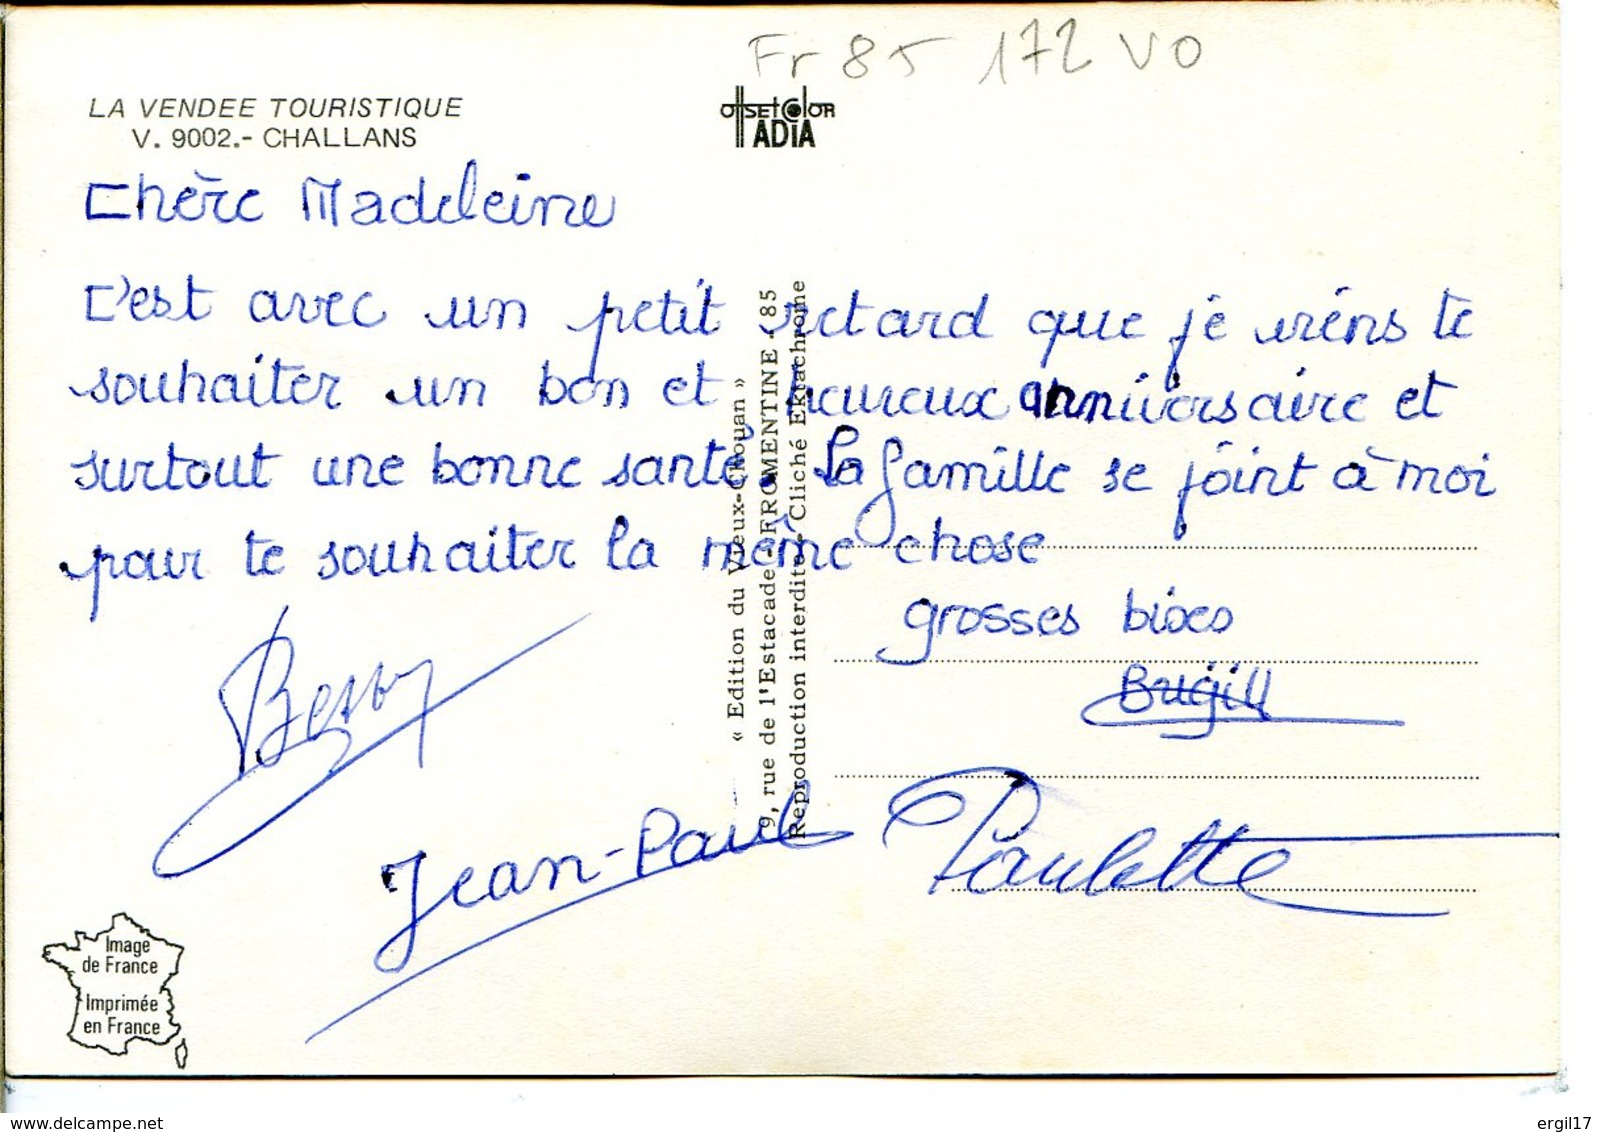 Fr 85 172 VO
LA VENDEE TOURISTIQUE
V. 9002.- CHALLANS
offset color
ADIA
Chère Madeleine
C'est avec un petit retard que je viens te
souhaiter un bon et heureux anniversaire et
surtout une bonne santé. La famille se joint à moi
pour te souhaiter la même chose
grosses bises
Jean-Paul
Paulette
« Edition du Vieux-Chouan »
9, rue de l'Estacade - FROMENTINE 85
Reproduction interdite - Cliché Ektachrome
Image
de France
Imprimée
en France
ergil17